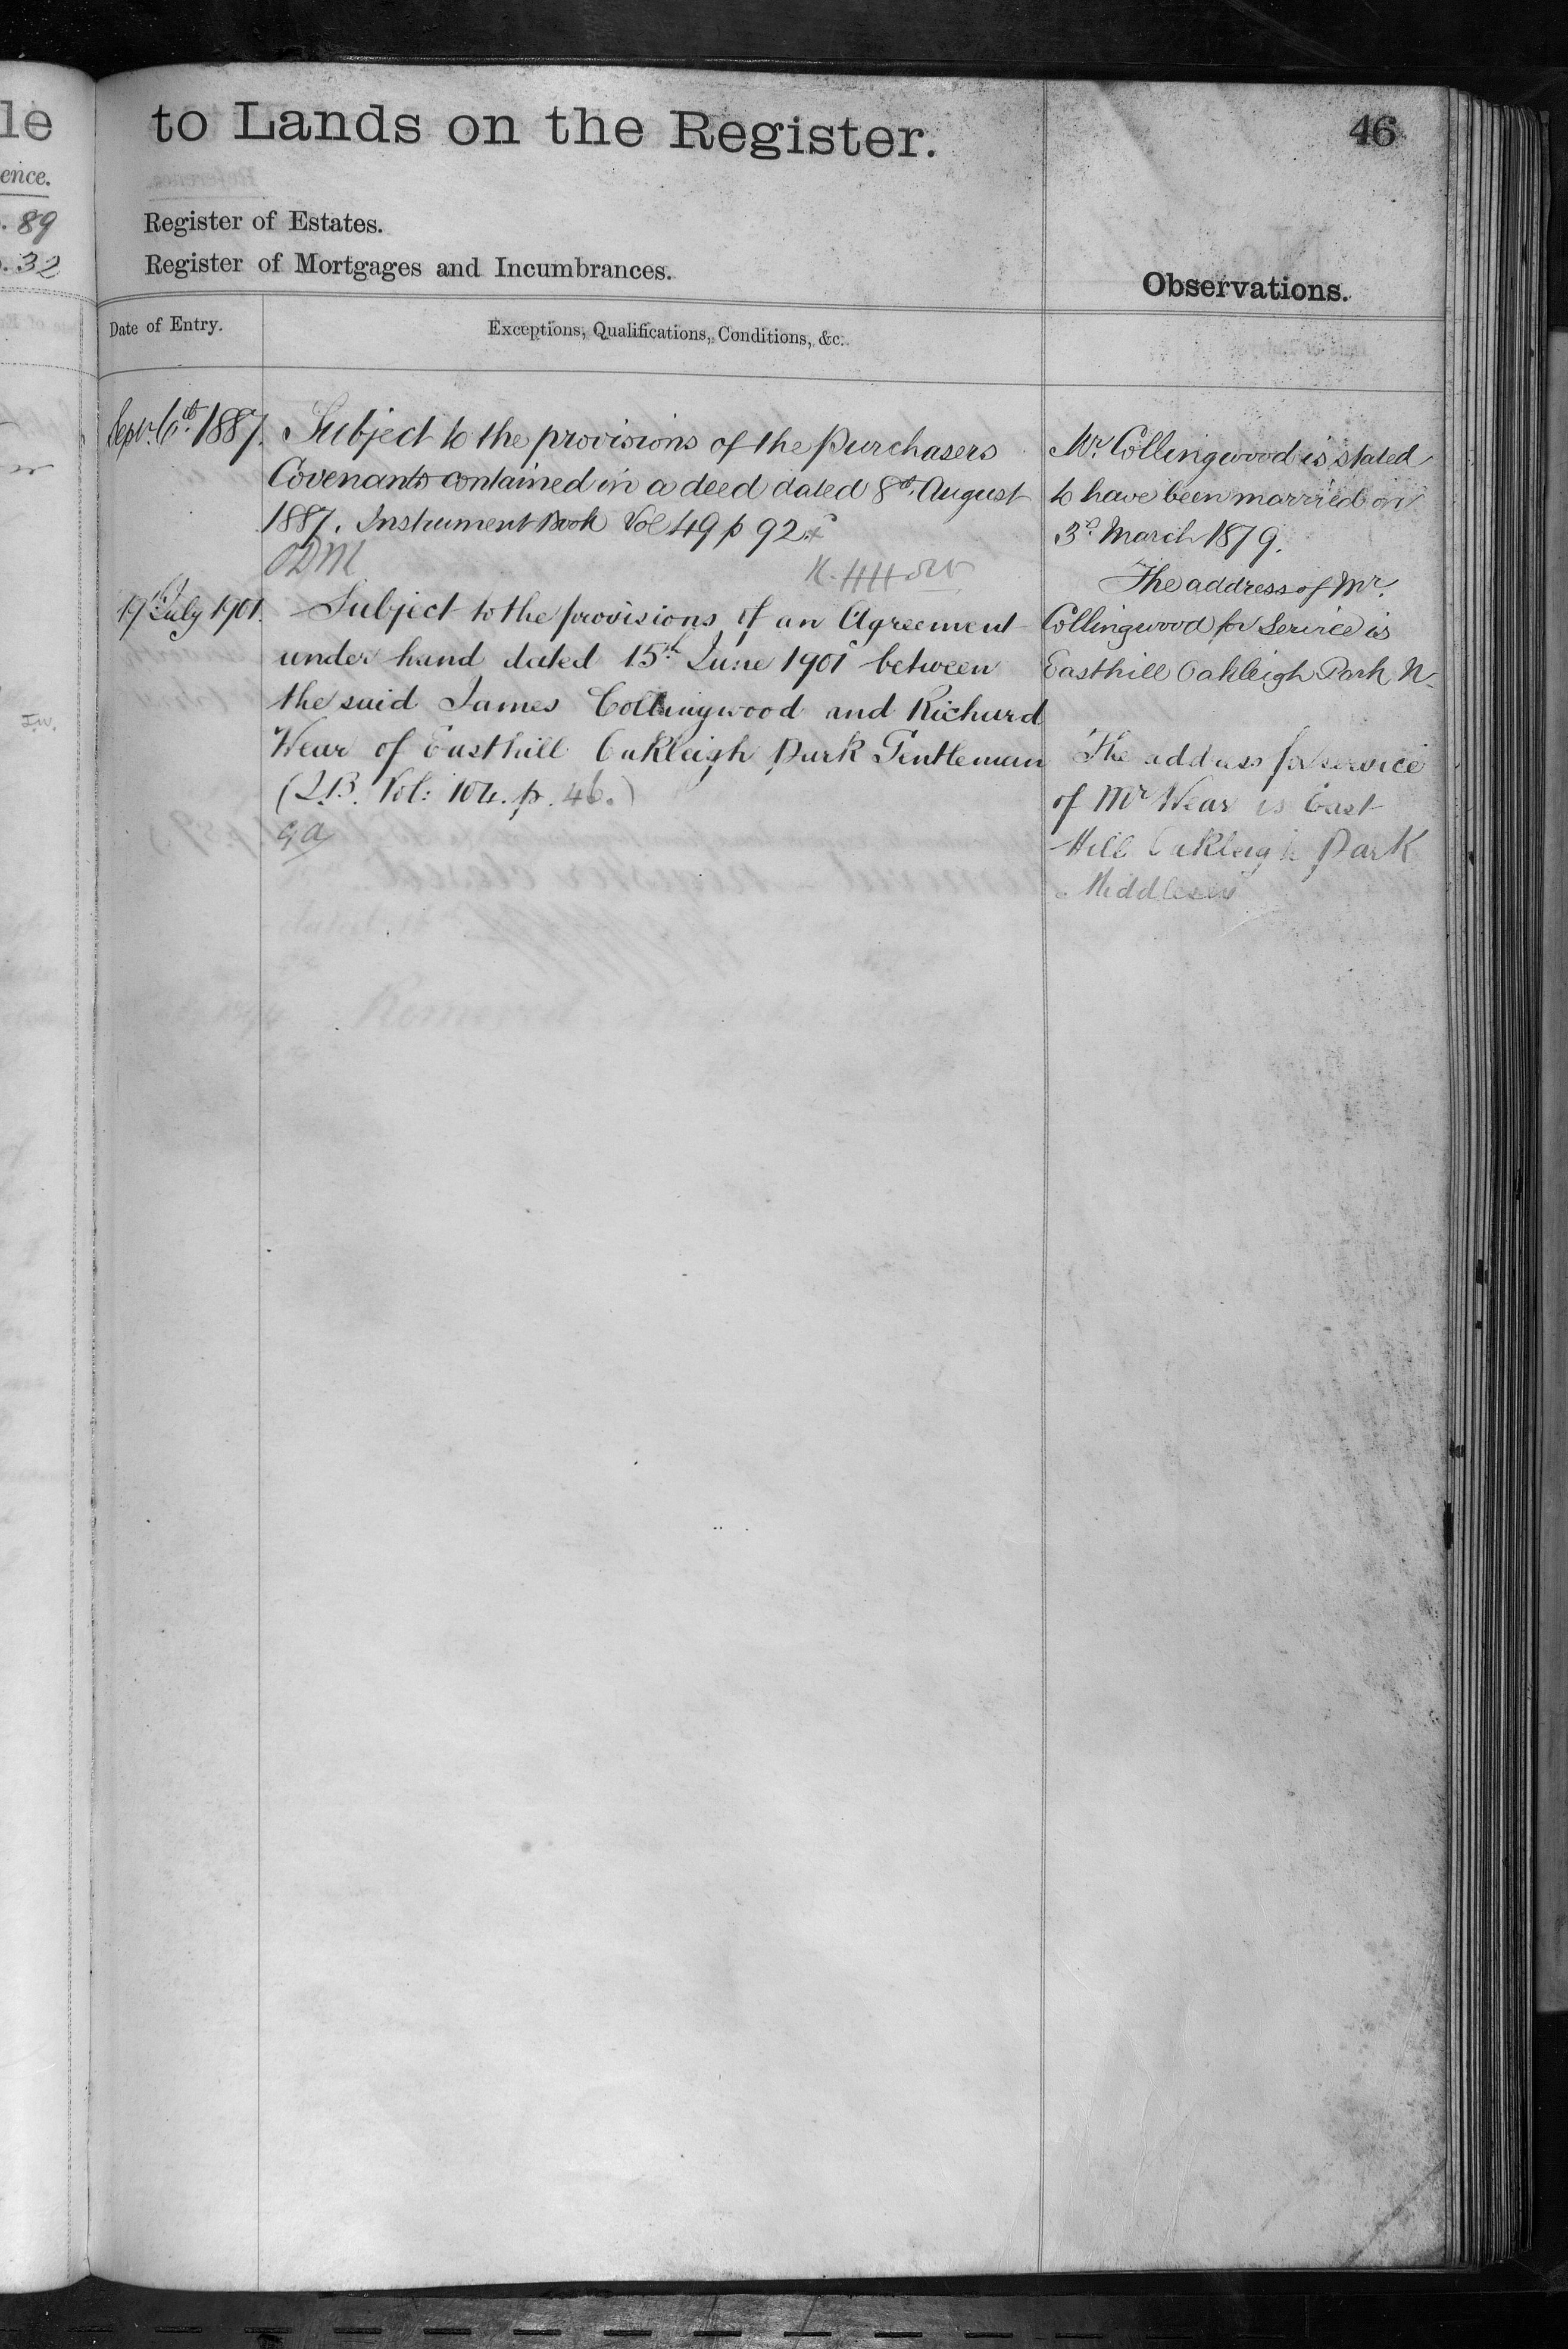 le
ence.
. 89
. 32
to Lands on the Register.
46
Register of Estates.
Register of Mortgages and Incumbrances.
Observations.
Date of Entry.
Exceptions, Qualifications, Conditions, &c.
Septr. 6th. 1887.
Subject to the provisions of the purchasers
Covenants contained in a deed dated 8th. August
1887. Instrument Book Vol 49 p 92
ODM
17th July 1901.
Subject to the provisions of an Agreement
under hand dated 15th June 1901 between
the said James Collingwood and Richard
Wear of Easthill Oakleigh Park Gentleman
(I.B. Vol: 104. p. 46.)
GA
Mr. Collingwood is stated
to have been married on
3d. March 1879.
The address of Mr.
Collingwood for Service is
Easthill Oakleigh Park N.
The address for service
of Mr Wear is East
Hill Oakleigh Park
Middlesex